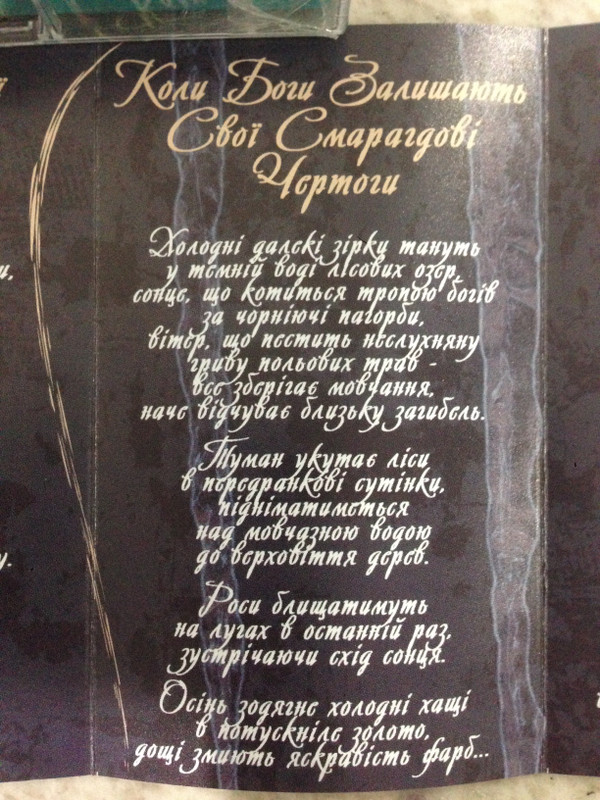 Коли Боги Залишають
Свої Смарагдові
Чертоги
Холодні далекі зірки тануть
у темній воді лісових озер,
сонце, що котиться тропою богів
за чорніючі пагорби,
вітер, що пестить неслухняну
гриву польових трав -
все зберігає мовчання,
наче відчуває близьку загибель.
Туман укутає ліси
в передранкові сутінки,
підніматиметься
над мовчазною водою
до верховіття дерев.
Роси блищатимуть
на лугах в останній раз,
зустрічаючи схід сонця.
Осінь зодягне холодні хащі
в потускніле золото,
дощі змиють яскравість фарб...